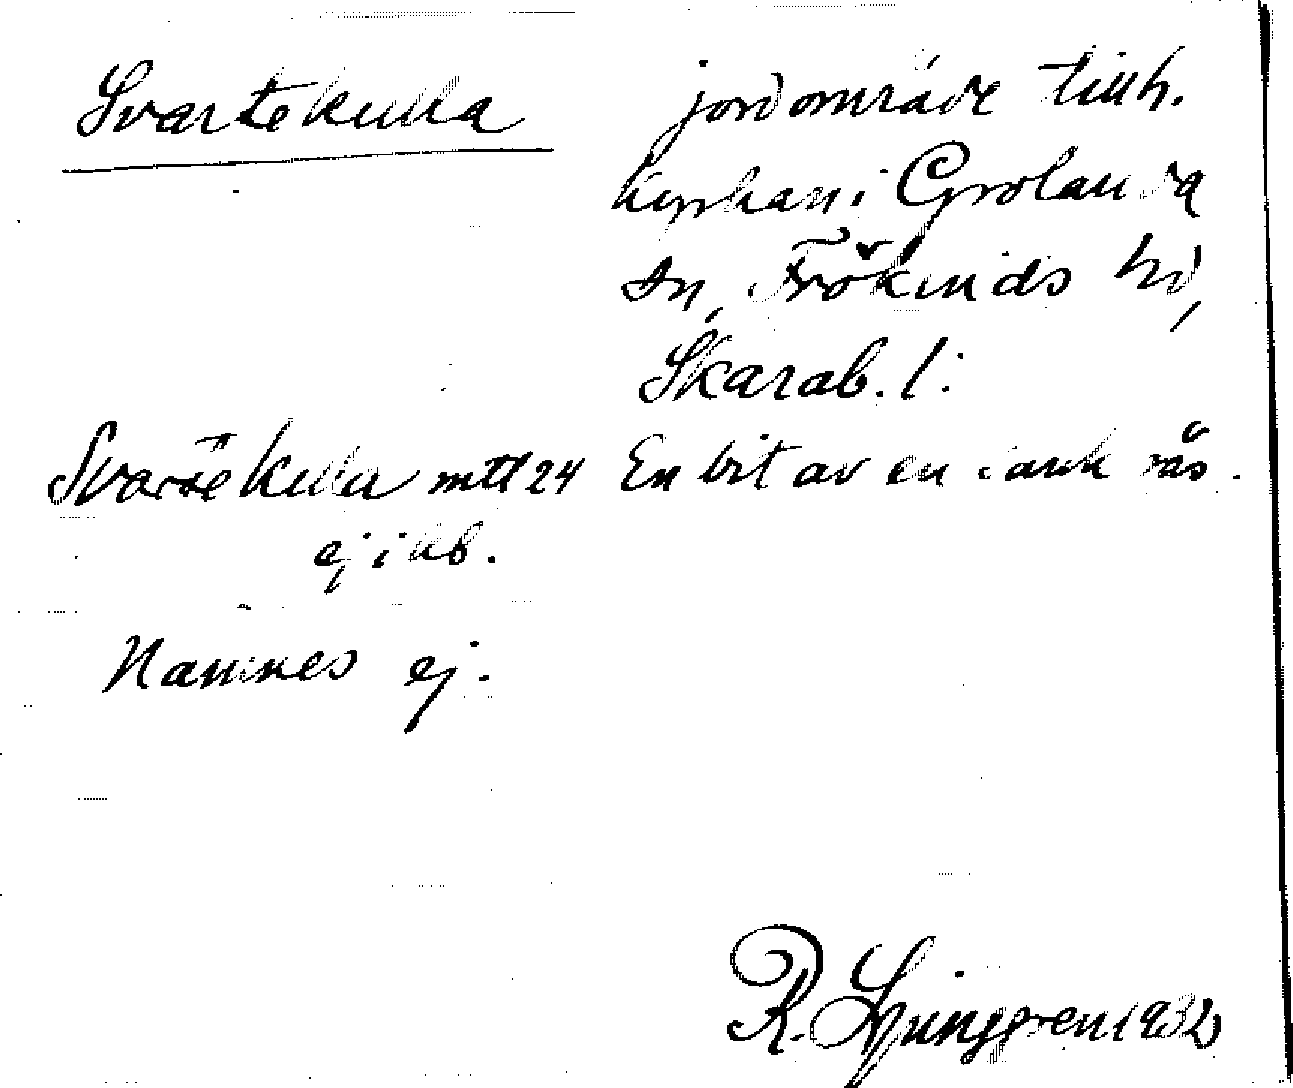 Svartekulla
jordområde tillh.
i Grolanda
sn, Frökinds hd,
Skarab. l.
Svarte kulla mtl 24 En bit av en sank ås.
ej i kb.
Namnes ej.
R. Ljunggren 1932